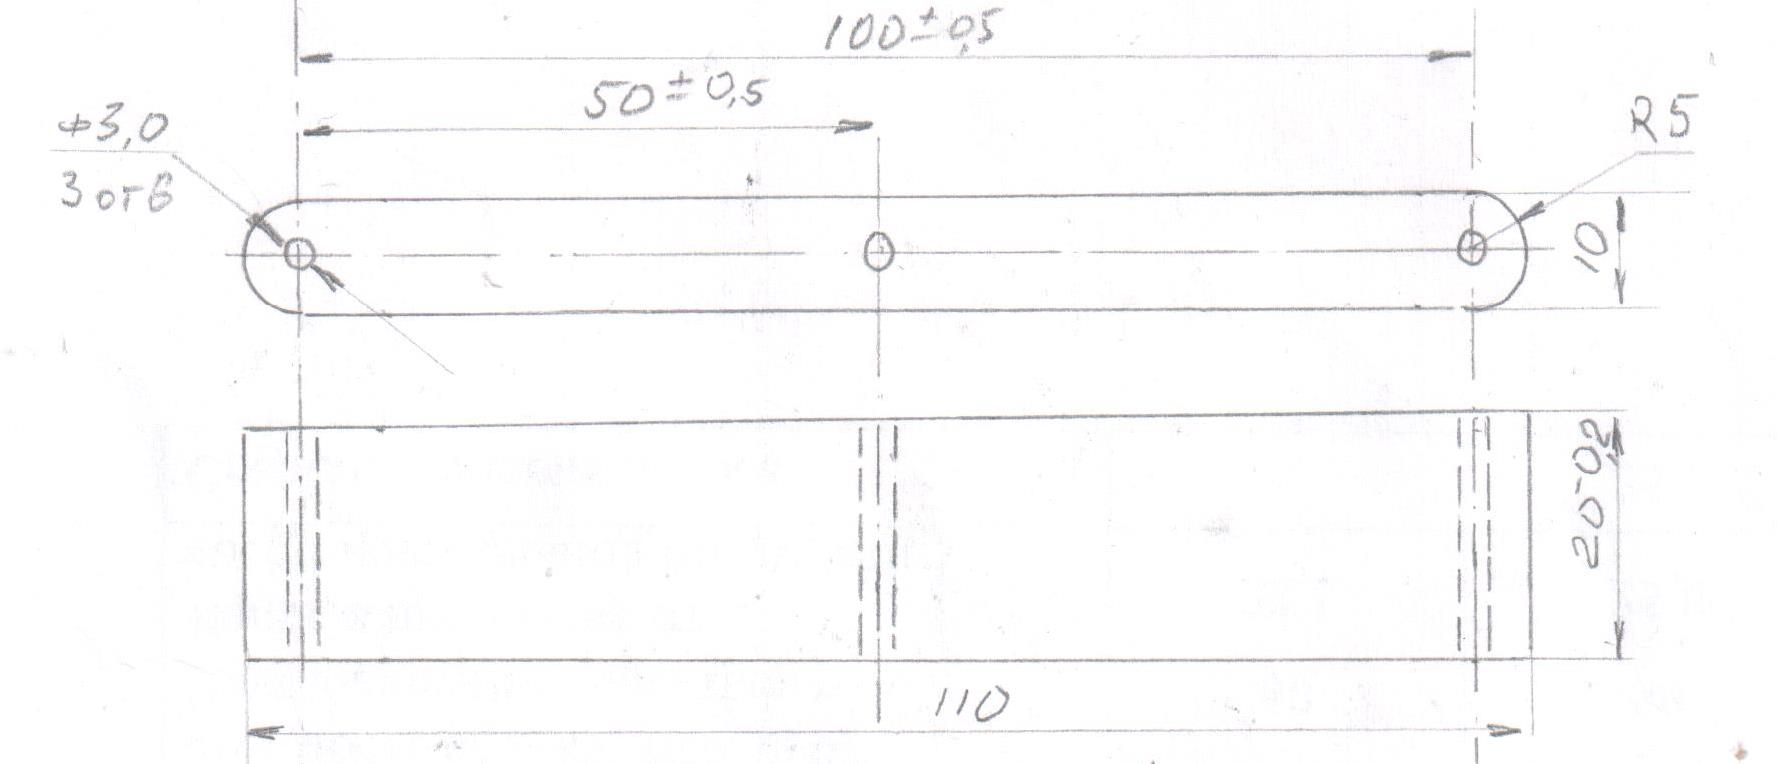 100±0,5
50±0,5
⌀3,0
3 отв
R5
10
20-0,2
110